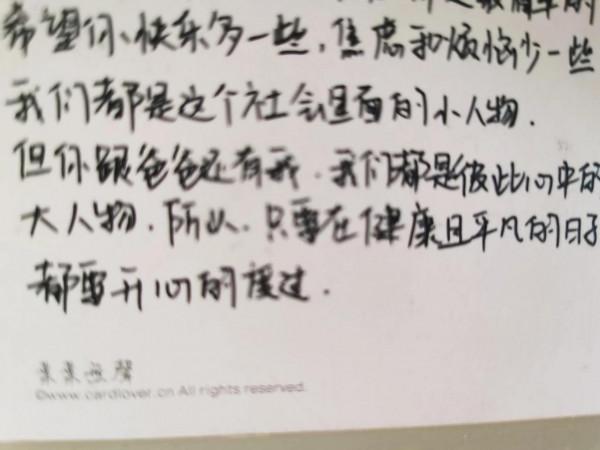 的
希望你、快乐多一些，焦虑和烦恼少一些
我们都是这个社会里面的小人物.
但你跟爸爸还有我、我们都是彼此心中的
大人物.所以、只要在健康且平凡的日子
都要开心的度过.
©www.cardlover.cn All rights reserved.